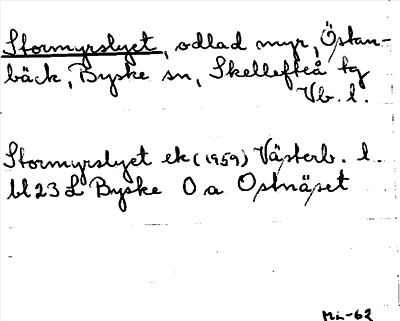 Stormyrslyet, odlad myr, Östan-
bäck, Byske sn, Skellefteå tg
Vb. l.
Stormyrslyet ek (1959) Västerb. l.
bl 23 L Byske O a Ostnäset
Mi-62